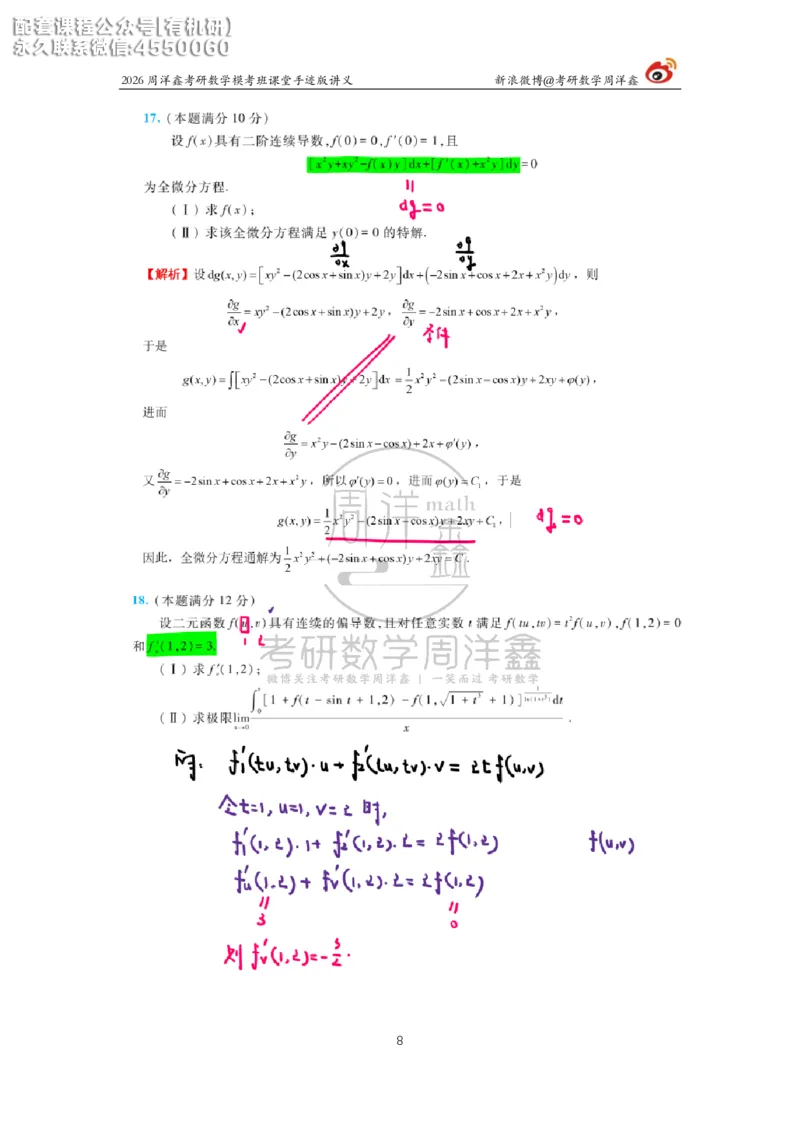 配套课程公众号[有机研)
永久联系微信:4550060
2026 周洋鑫考研数学模考班课堂手迹版讲义 新浪微博@考研数学周洋鑫
17. (本题满分 10 分)
设 f(x) 具有二阶连续导数, f(0) = 0, f'(0) = 1, 且
[x²y+xy²-f(x)y]dx+[f'(x)+x²y]dy=0
为全微分方程.
||
dg=0
(Ⅰ) 求 f(x);
(Ⅱ) 求该全微分方程满足 y(0) = 0 的特解.
∂g/∂x ∂g/∂y
【解析】设 dg(x, y) = [xy² - (2cos x + sin x)y + 2y]dx + (-2sin x + cos x + 2x + x²y)dy, 则
∂g/∂x = xy² - (2cos x + sin x)y + 2y, ∂g/∂y = -2sin x + cos x + 2x + x²y,
条件
于是
g(x, y) = ∫[xy² - (2cos x + sin x)y + 2y]dx = 1/2 x²y² - (2sin x - cos x)y + 2xy + φ(y),
进而
∂g/∂y = x²y - (2sin x - cos x) + 2x + φ'(y),
又 ∂g/∂y = -2sin x + cos x + 2x + x²y, 所以 φ'(y) = 0, 进而 φ(y) = C₁, 于是
g(x, y) = 1/2 x²y² - (2sin x - cos x)y + 2xy + C₁, dg=0
因此, 全微分方程通解为 1/2 x²y² + (-2sin x + cos x)y + 2xy = C.
18. (本题满分 12 分)
设二元函数 f(u,v) 具有连续的偏导数, 且对任意实数 t 满足 f(tu,tv) = t²f(u,v), f(1,2) = 0
1 2
和 f'ᵤ(1,2) = 3.
(Ⅰ) 求 f'ᵥ(1,2);
(Ⅱ) 求极限 lim x→0 ∫₀ˣ [1 + f(t - sin t + 1,2) - f(1, √(1 + t³) + 1)]^(1/ln(1+t³)) dt / x .
周洋鑫
math
考研数学周洋鑫
微博关注考研数学周洋鑫 | 一笑而过 考研数学
f₁'(tu,tv)·u + f₂'(tu,tv)·v = 2t f(u,v)
令t=1, u=1, v=2 时,
f₁'(1,2)·1 + f₂'(1,2)·2 = 2f(1,2) f(u,v)
fᵤ'(1,2) + fᵥ'(1,2)·2 = 2f(1,2)
|| ||
3 0
则 fᵥ'(1,2) = -3/2.
8